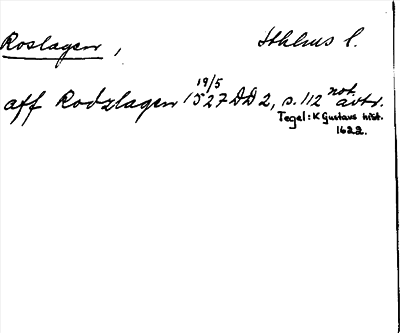 Roslagen, Sthlms l.
19/5
aff Rodzlagen 1527 DD 2, s. 112 not. avtr.
Tegel: K Gustavs hist.
1622.